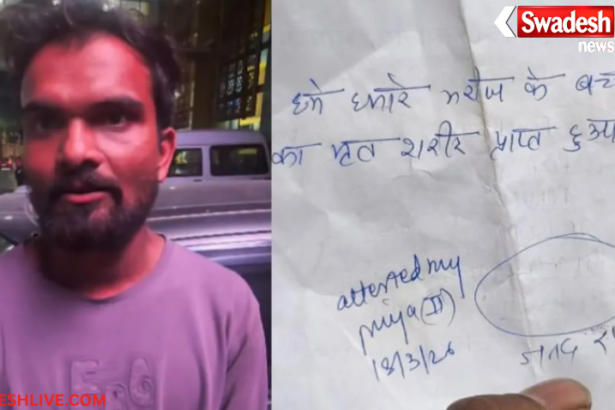 Swadesh
news
हमे हमारे मरीज के बच
का मृत शरीर प्राप्त हुआ
attested my
priya (II)
18/3/26
ESHLIVE.COM